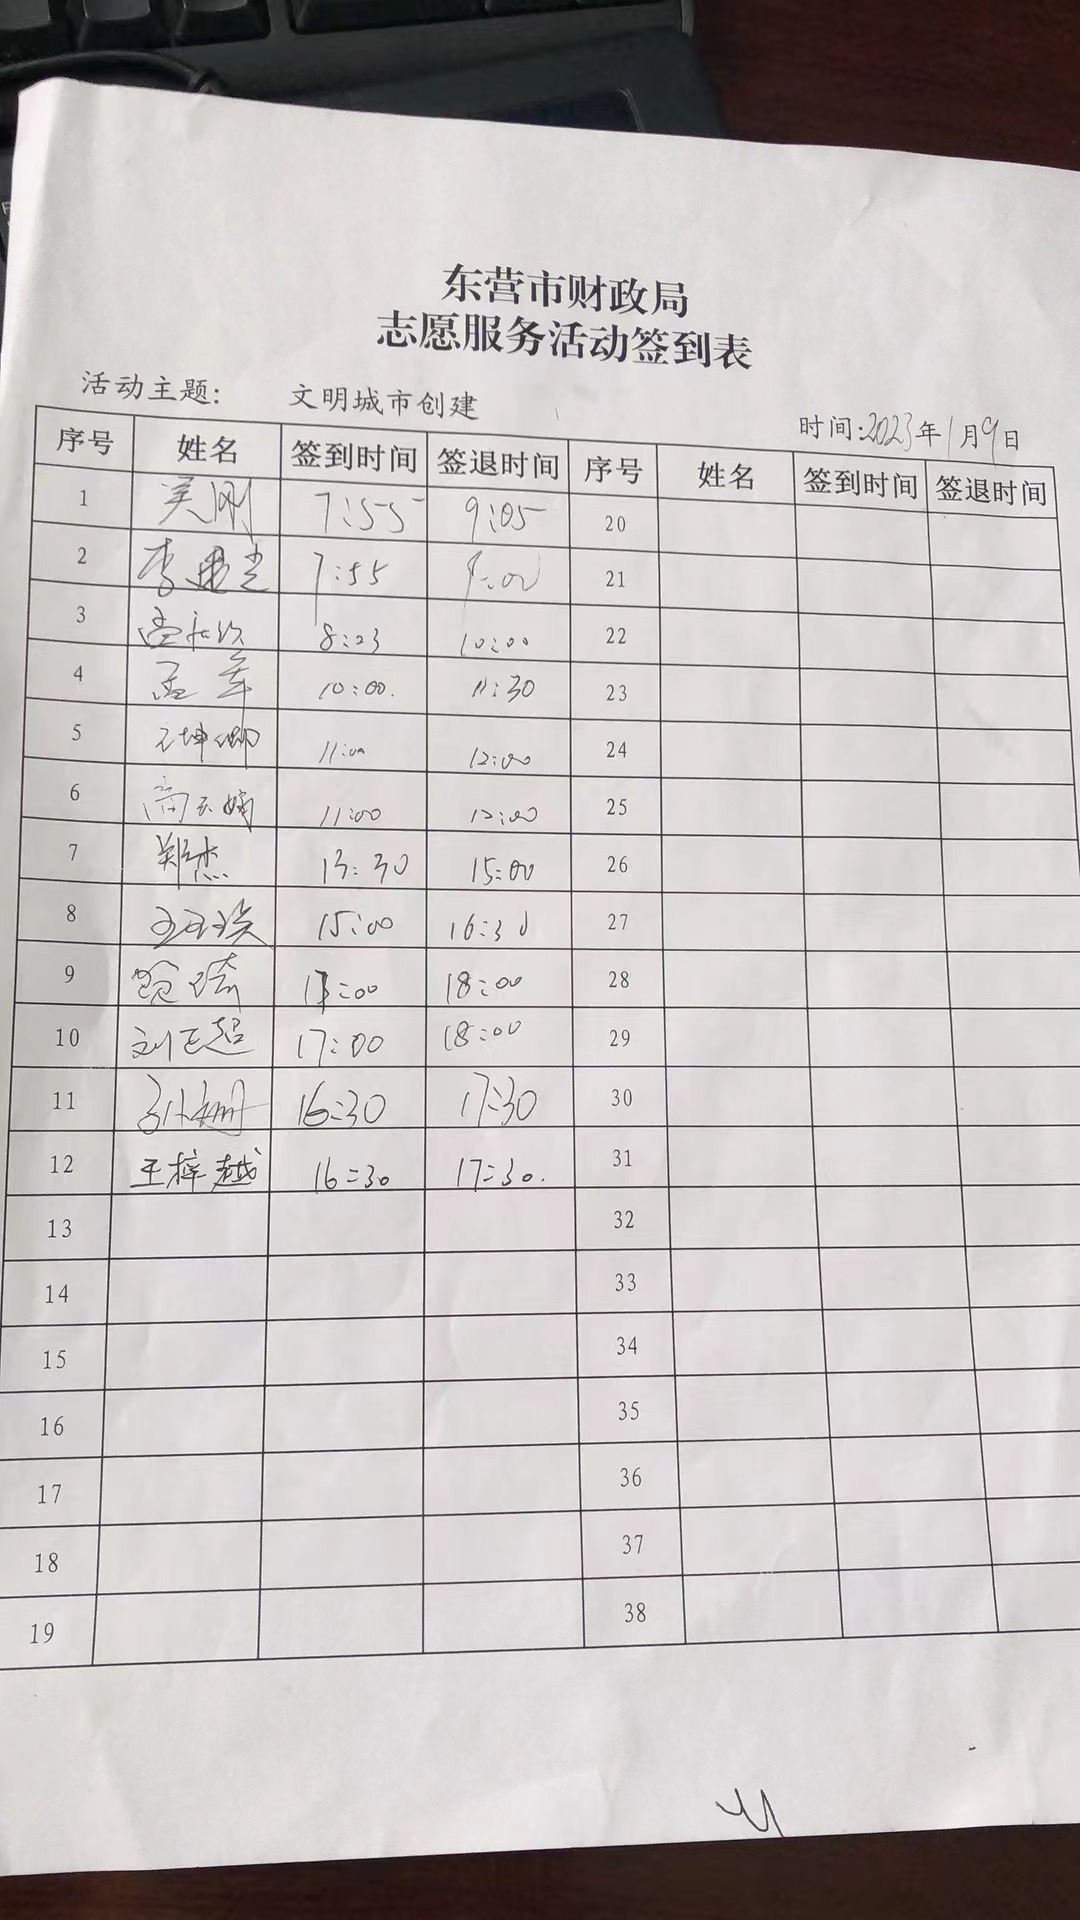 东营市财政局
志愿服务活动签到表
活动主题: 文明城市创建
时间:2023年1月9日
序号 姓名 签到时间 签退时间 序号 姓名 签到时间 签退时间
1 吴刚 7:55 9:05 20
2 李 7:55 9:00 21
3 8:23 10:00 22
4 孟 10:00. 11:30 23
5 11:00 12:00 24
6 11:00 12:00 25
7 郑杰 13:30 15:00 26
8 15:00 16:30 27
9 :00 18:00 28
10 刘正超 17:00 18:00 29
11 孙 16:30 17:30 30
12 王梓越 16:30 17:30. 31
13 32
14 33
15 34
16 35
17 36
18 37
19 38